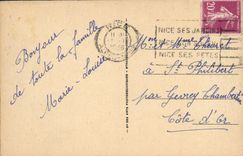 Bonjour
de toute la famille
Marie-Louise
NICE SES JARDINS
NICE SES FÊTES
20
Mr et Mme Chouet
à St Philibert
par Gevrey Chambertin
Côte d'Or